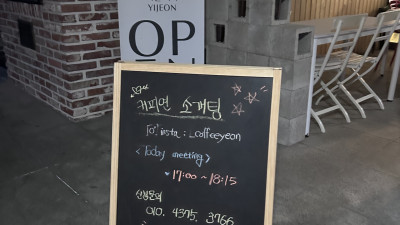 YIJEON
OP
커피연 소개팅
To! insta : _coffeeyeon
< Today meeting >
♥ 17:00 ~ 18:15
신청문의
010. 4375. 3766